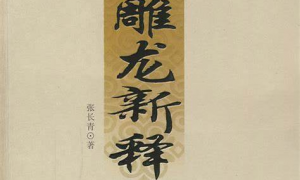 雕龙新释
张长青⊙著